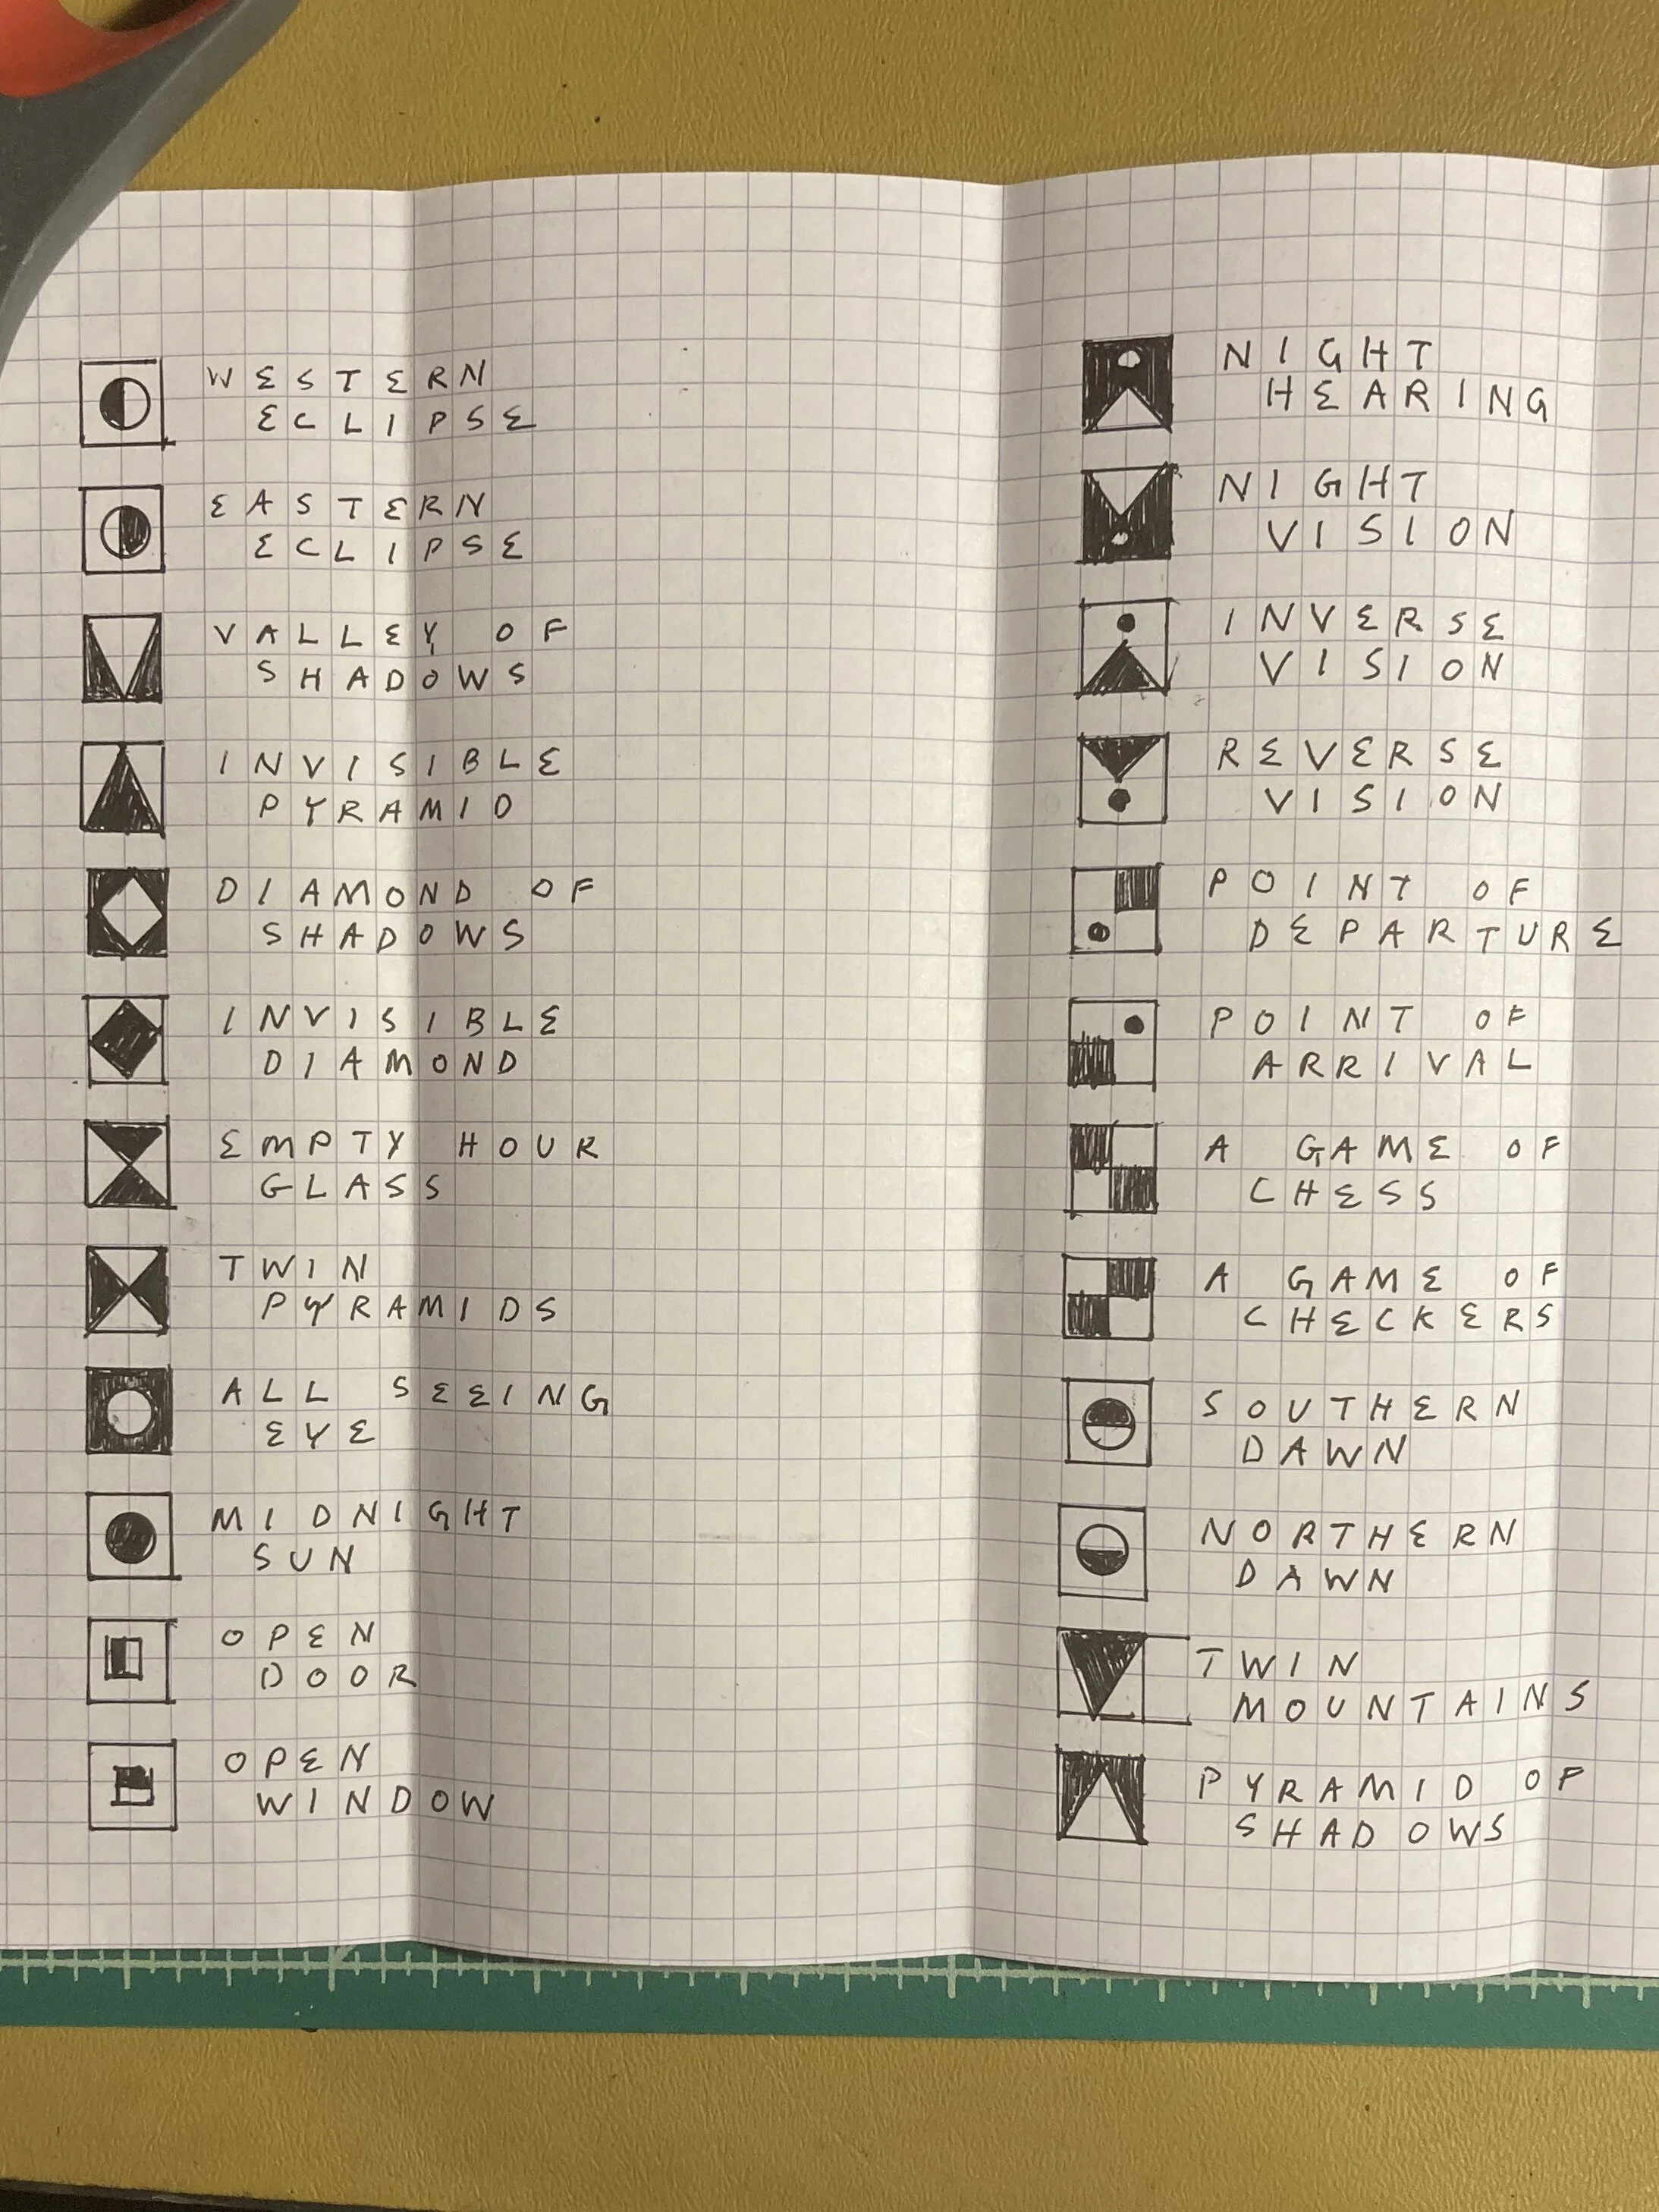 WESTERN
ECLIPSE
EASTERN
ECLIPSE
VALLEY OF
SHADOWS
INVISIBLE
PYRAMID
DIAMOND OF
SHADOWS
INVISIBLE
DIAMOND
EMPTY HOUR
GLASS
TWIN
PYRAMIDS
ALL SEEING
EYE
MIDNIGHT
SUN
OPEN
DOOR
OPEN
WINDOW
NIGHT
HEARING
NIGHT
VISION
INVERSE
VISION
REVERSE
VISION
POINT OF
DEPARTURE
POINT OF
ARRIVAL
A GAME OF
CHESS
A GAME OF
CHECKERS
SOUTHERN
DAWN
NORTHERN
DAWN
TWIN
MOUNTAINS
PYRAMID OF
SHADOWS